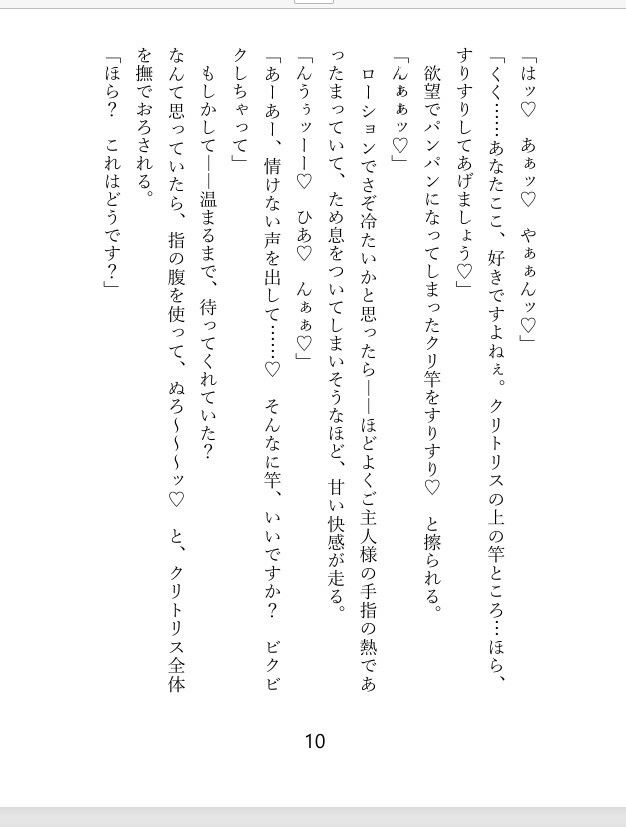 「はッ♡　あぁッ♡　やぁぁんッ♡」
「くく……あなたここ、好きですよねぇ。クリトリスの上の竿ところ…ほら、
すりすりしてあげましょう♡」
　欲望でパンパンになってしまったクリ竿をすりすり♡　と擦られる。
「んぁぁッ♡」
　ローションでさぞ冷たいかと思ったら――ほどよくご主人様の手指の熱であ
ったまっていて、ため息をついてしまいそうなほど、甘い快感が走る。
「んうぅッーー♡　ひあ♡　んぁぁ♡」
「あーあー、情けない声を出して……♡　そんなに竿、いいですか？　ビクビ
クしちゃって」
　もしかして――温まるまで、待ってくれていた？
なんて思っていたら、指の腹を使って、ぬろ～～～ッ♡　と、クリトリス全体
を撫でおろされる。
「ほら？　これはどうです？」
10